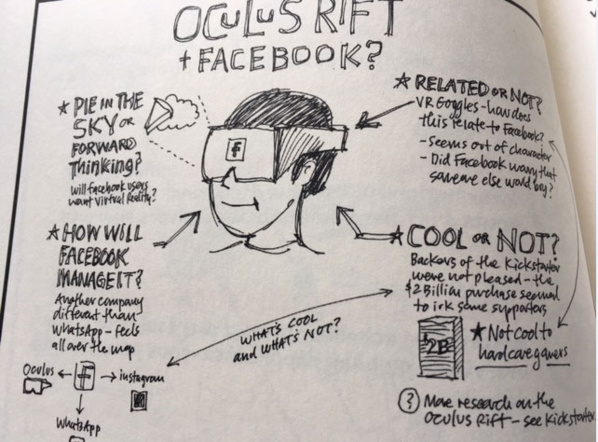 OCULUS RIFT
+ FACEBOOK?
★ PIE IN THE
SKY OR
FORWARD
Thinking?
Will facebook users
want virtual Reality?
★ RELATED OR NOT?
VR Goggles - how does
this relate to Facebook?
- Seems out of character
- Did Facebook worry that
someone else would buy?
f
★ HOW WILL
FACEBOOK
MANAGE IT?
Another company
different than
WhatsApp - feels
all over the map
★ COOL OR NOT?
Backers of the Kickstarter
were not pleased - the
$2 Billion purchase seemed
to irk some supporters
WHAT'S COOL
and WHAT'S NOT?
2B
★ Not cool to
hardcore gamers
Oculus ← f → instagram
WhatsApp
? More research on the
Oculus Rift - see Kickstarter